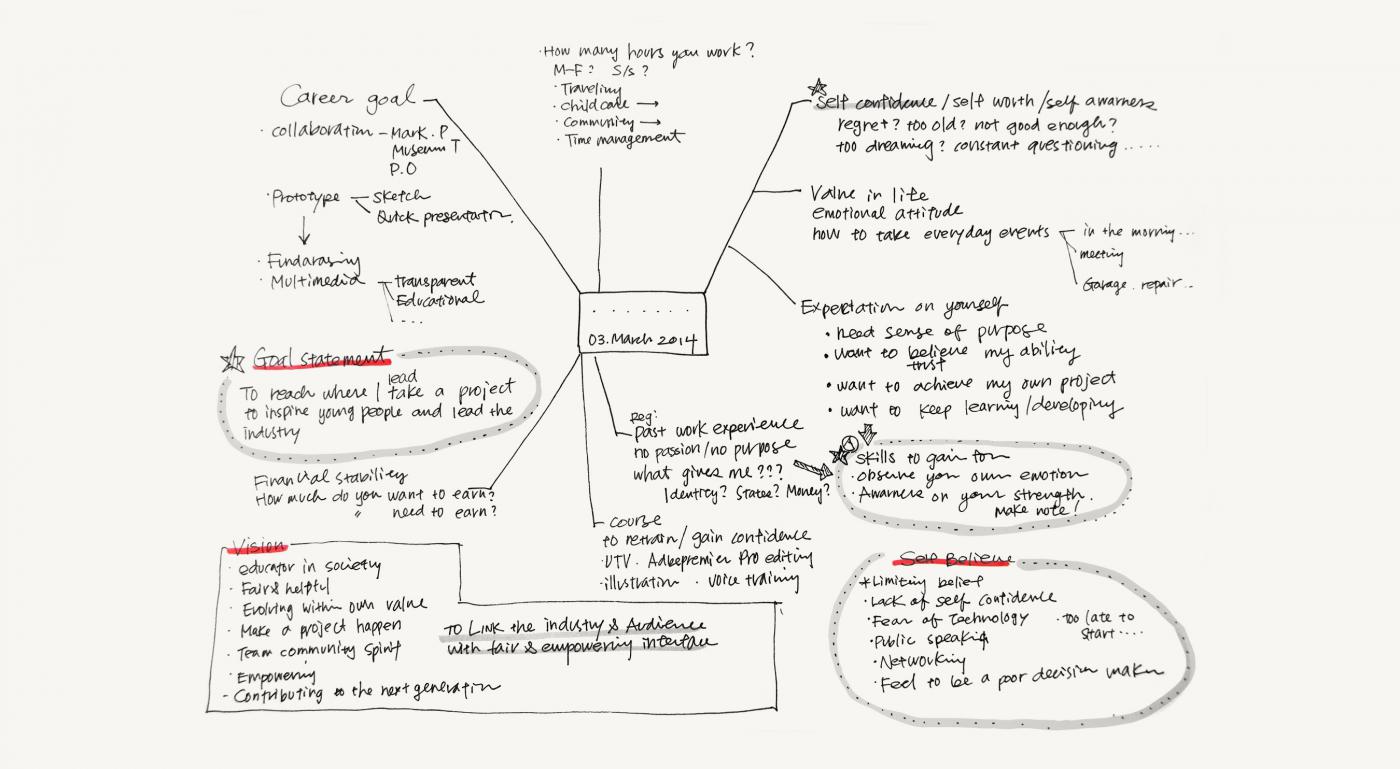 Career goal
· collaboration – Mark. P
Museum T
P.O
· Prototype – sketch
Quick presentation.
· Findarasing
· Multimedia – transparent
Educational
...
Goal statement
lead
To reach where I take a project
to inspire young people and lead the
industry
Financial stability
How much do you want to earn?
" need to earn?
Vision
· educator in society
· Fair & helpful
· Evolving within own value
· Make a project happen
· Team community spirit
· Empowering
- Contributing to the next generation
TO LINK the industry & Audience
with fair & empowering interface
· How many hours you work?
M-F? S/s?
· Traveling
· Childcare →
· Community →
· Time management
. . . . . . .
03. March 2014
reg:
past work experience
no passion/no purpose
what gives me ???
Identity? States? Money?
course
to retrain/gain confidence
· UTV. Adbepremier Pro editing
· illustration · voice training
self confidence/self worth/self awarness
regret? too old? not good enough?
too dreaming? constant questioning .....
Value in life
emotional attitude
how to take everyday events – in the morning...
meeting
Garage. repair..
Expectation on yourself
· need sense of purpose
· want to believe my ability
trust
· want to achieve my own project
· want to keep learning/developing
1
skills to gain for
· observe your own emotion
· Awarness on your strength.
make note!
Self Believe
*Limiting belief
· Lack of self confidence
· Fear of Technology · too late to
start....
· Public speaking
· Networking
· Feel to be a poor decision maker